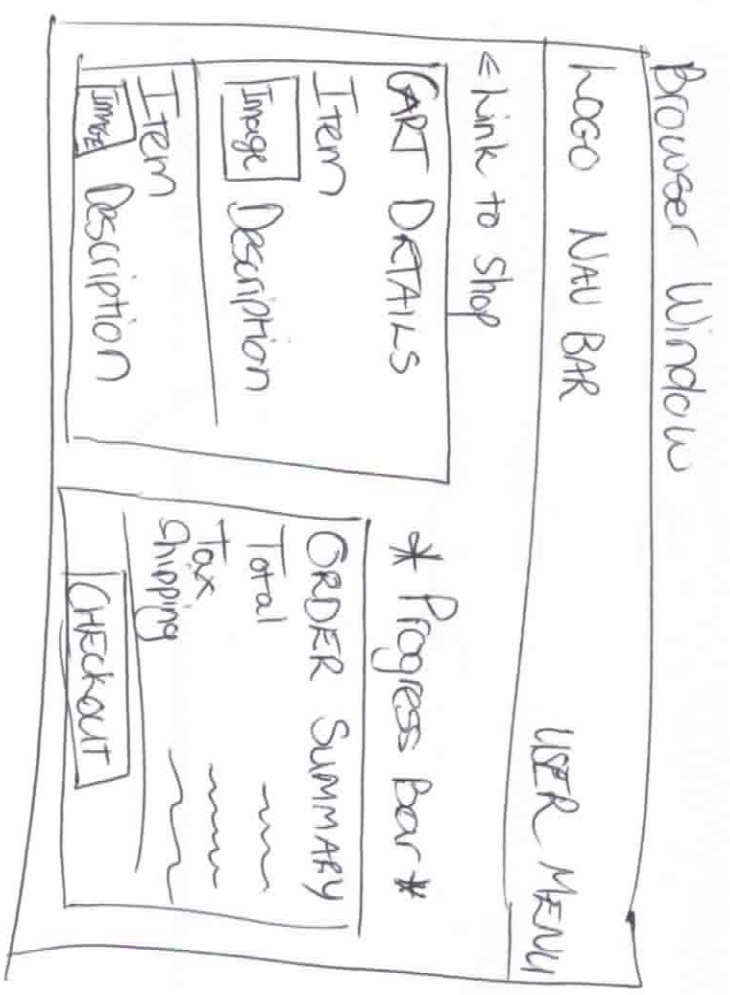 Browser Window
LOGO NAV BAR USER MENU
< Link to Shop
* Progress Bar *
CART DETAILS
Item
Image Description
Item
Image Description
ORDER SUMMARY
Total
Tax
Shipping
CHECKOUT